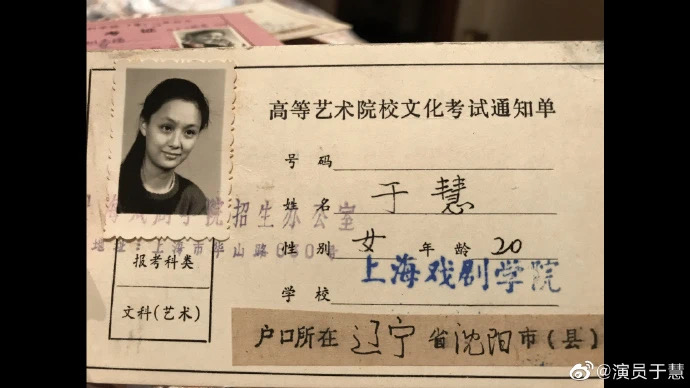 高等艺术院校文化考试通知单
号码
姓名 于慧
海戏剧学院招生办公室
地址：上海市华山路630号
性别 女 年龄 20
报考科类
上海戏剧学院
学校
文科(艺术)
户口所在 辽宁省沈阳市(县)
@演员于慧